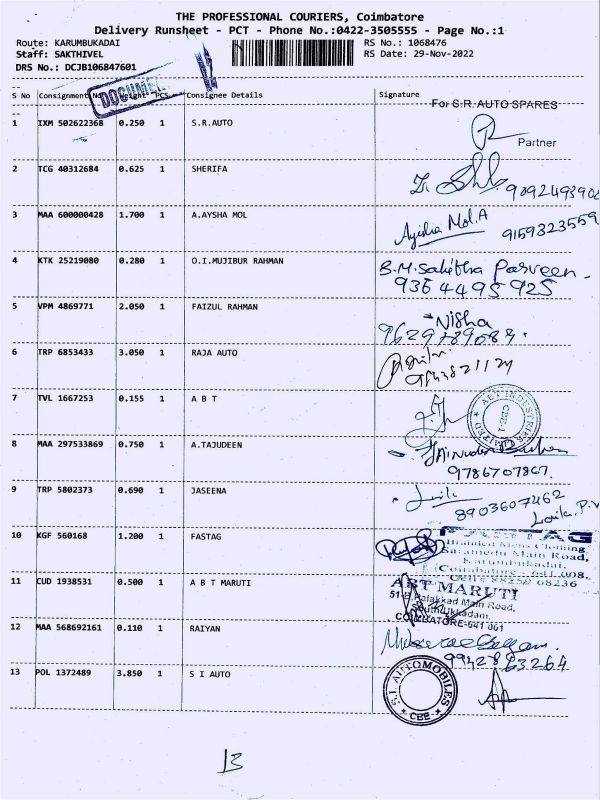 THE PROFESSIONAL COURIERS, Coimbatore
Delivery Runsheet - PCT - Phone No.:0422-3505555 - Page No.:1
Route: KARUMBUKADAI
Staff: SAKTHIVEL
DRS No.: DCJB106847601
RS No.: 1068476
RS Date: 29-Nov-2022
S No Consignment No Weight PCS Consignee Details Signature
DOCUMENT
For S.R. AUTO SPARES
1 IXM 502622368 0.250 1 S.R.AUTO
Partner
2 TCG 40312684 0.625 1 SHERIFA
3 MAA 600000428 1.700 1 A.AYSHA MOL Ayisha Mol.A 9159323559
4 KTK 25219080 0.280 1 O.I.MUJIBUR RAHMAN B.M.Sabitha Parveen
936 4495 925
5 VPM 4869771 2.050 1 FAIZUL RAHMAN Nisha
6 TRP 6853433 3.050 1 RAJA AUTO
7 TVL 1667253 0.155 1 A B T ABT INDUSTRIES LIMITED CBE-1
8 MAA 297533869 0.750 1 A.TAJUDEEN
9786707867
9 TRP 5802373 0.690 1 JASEENA Laila
8903607462
Laila.P.V
10 KGF 560168 1.200 1 FASTAG FASTAG
Branded Mens Clothing
Saramedu Main Road,
Karumbukadai,
Coimbatore - 641 008.
Cell: 88250 68236
11 CUD 1938531 0.500 1 A B T MARUTI ABT MARUTI
Palakkad Main Road,
Kuniamuthur
COIMBATORE-641 001
12 MAA 568692161 0.110 1 RAIYAN
9942863264
13 POL 1372489 3.850 1 S I AUTO S.I. AUTOMOBILES CBE
13